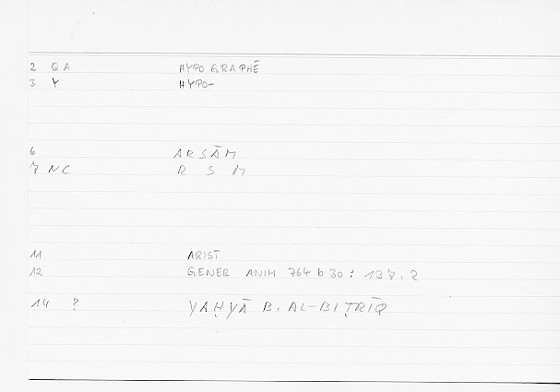 2 QA HYPOGRAPHĒ
3 Y HYPO-
6 ARSĀM
7 NC R S M
11 ARIST
12 GENER ANIM 764 b 30 : 137, 2
14 ? YAḤYĀ B. AL-BIṬRĪQ